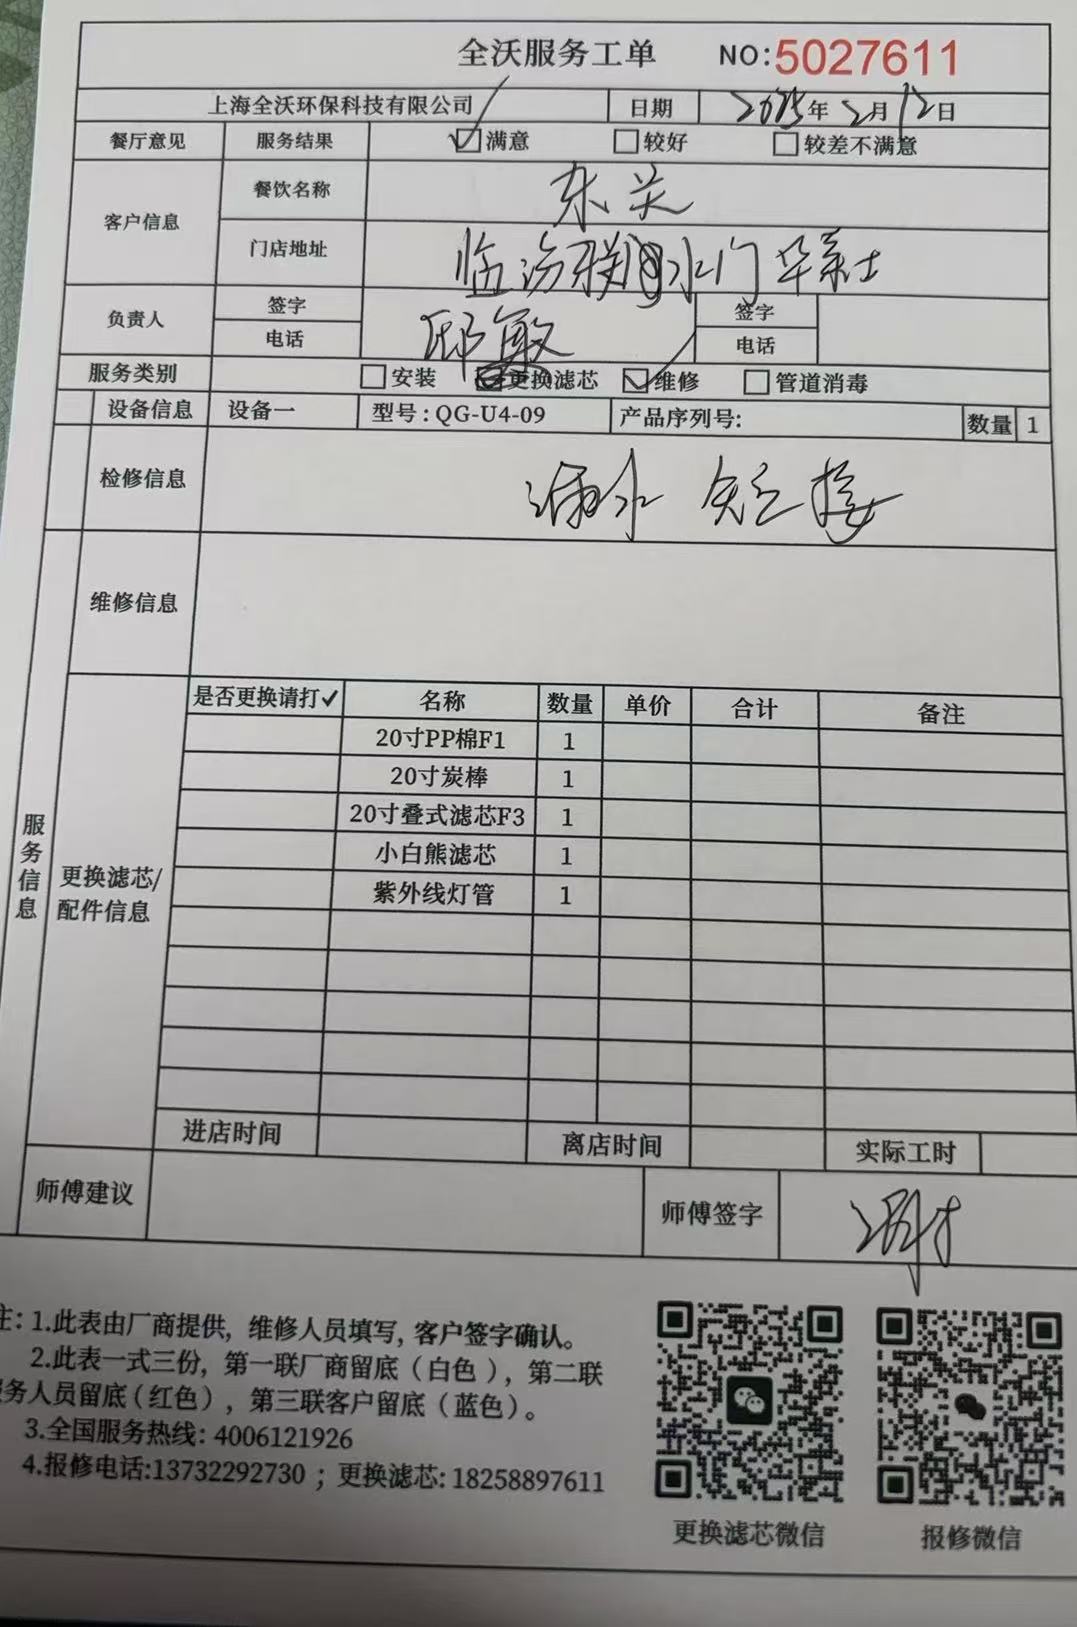 全沃服务工单 NO:5027611
上海全沃环保科技有限公司 日期 2025年2月12日
餐厅意见 服务结果 ☑满意 □较好 □较差不满意
客户信息 餐饮名称 东关
门店地址 临汾联水门华
负责人 签字 邱敏 签字
电话 电话
服务类别 □安装 更换滤芯 ☑维修 □管道消毒
设备信息 设备一 型号:QG-U4-09 产品序列号: 数量 1
检修信息 漏水 短接
维修信息
服务信息
更换滤芯/配件信息
是否更换请打✓ 名称 数量 单价 合计 备注
20寸PP棉F1 1
20寸炭棒 1
20寸叠式滤芯F3 1
小白熊滤芯 1
紫外线灯管 1
进店时间 离店时间 实际工时
师傅建议 师傅签字
注: 1.此表由厂商提供, 维修人员填写, 客户签字确认。
2.此表一式三份, 第一联厂商留底(白色), 第二联
务人员留底(红色), 第三联客户留底(蓝色)。
3.全国服务热线: 4006121926
4.报修电话:13732292730 ; 更换滤芯: 18258897611
更换滤芯微信 报修微信